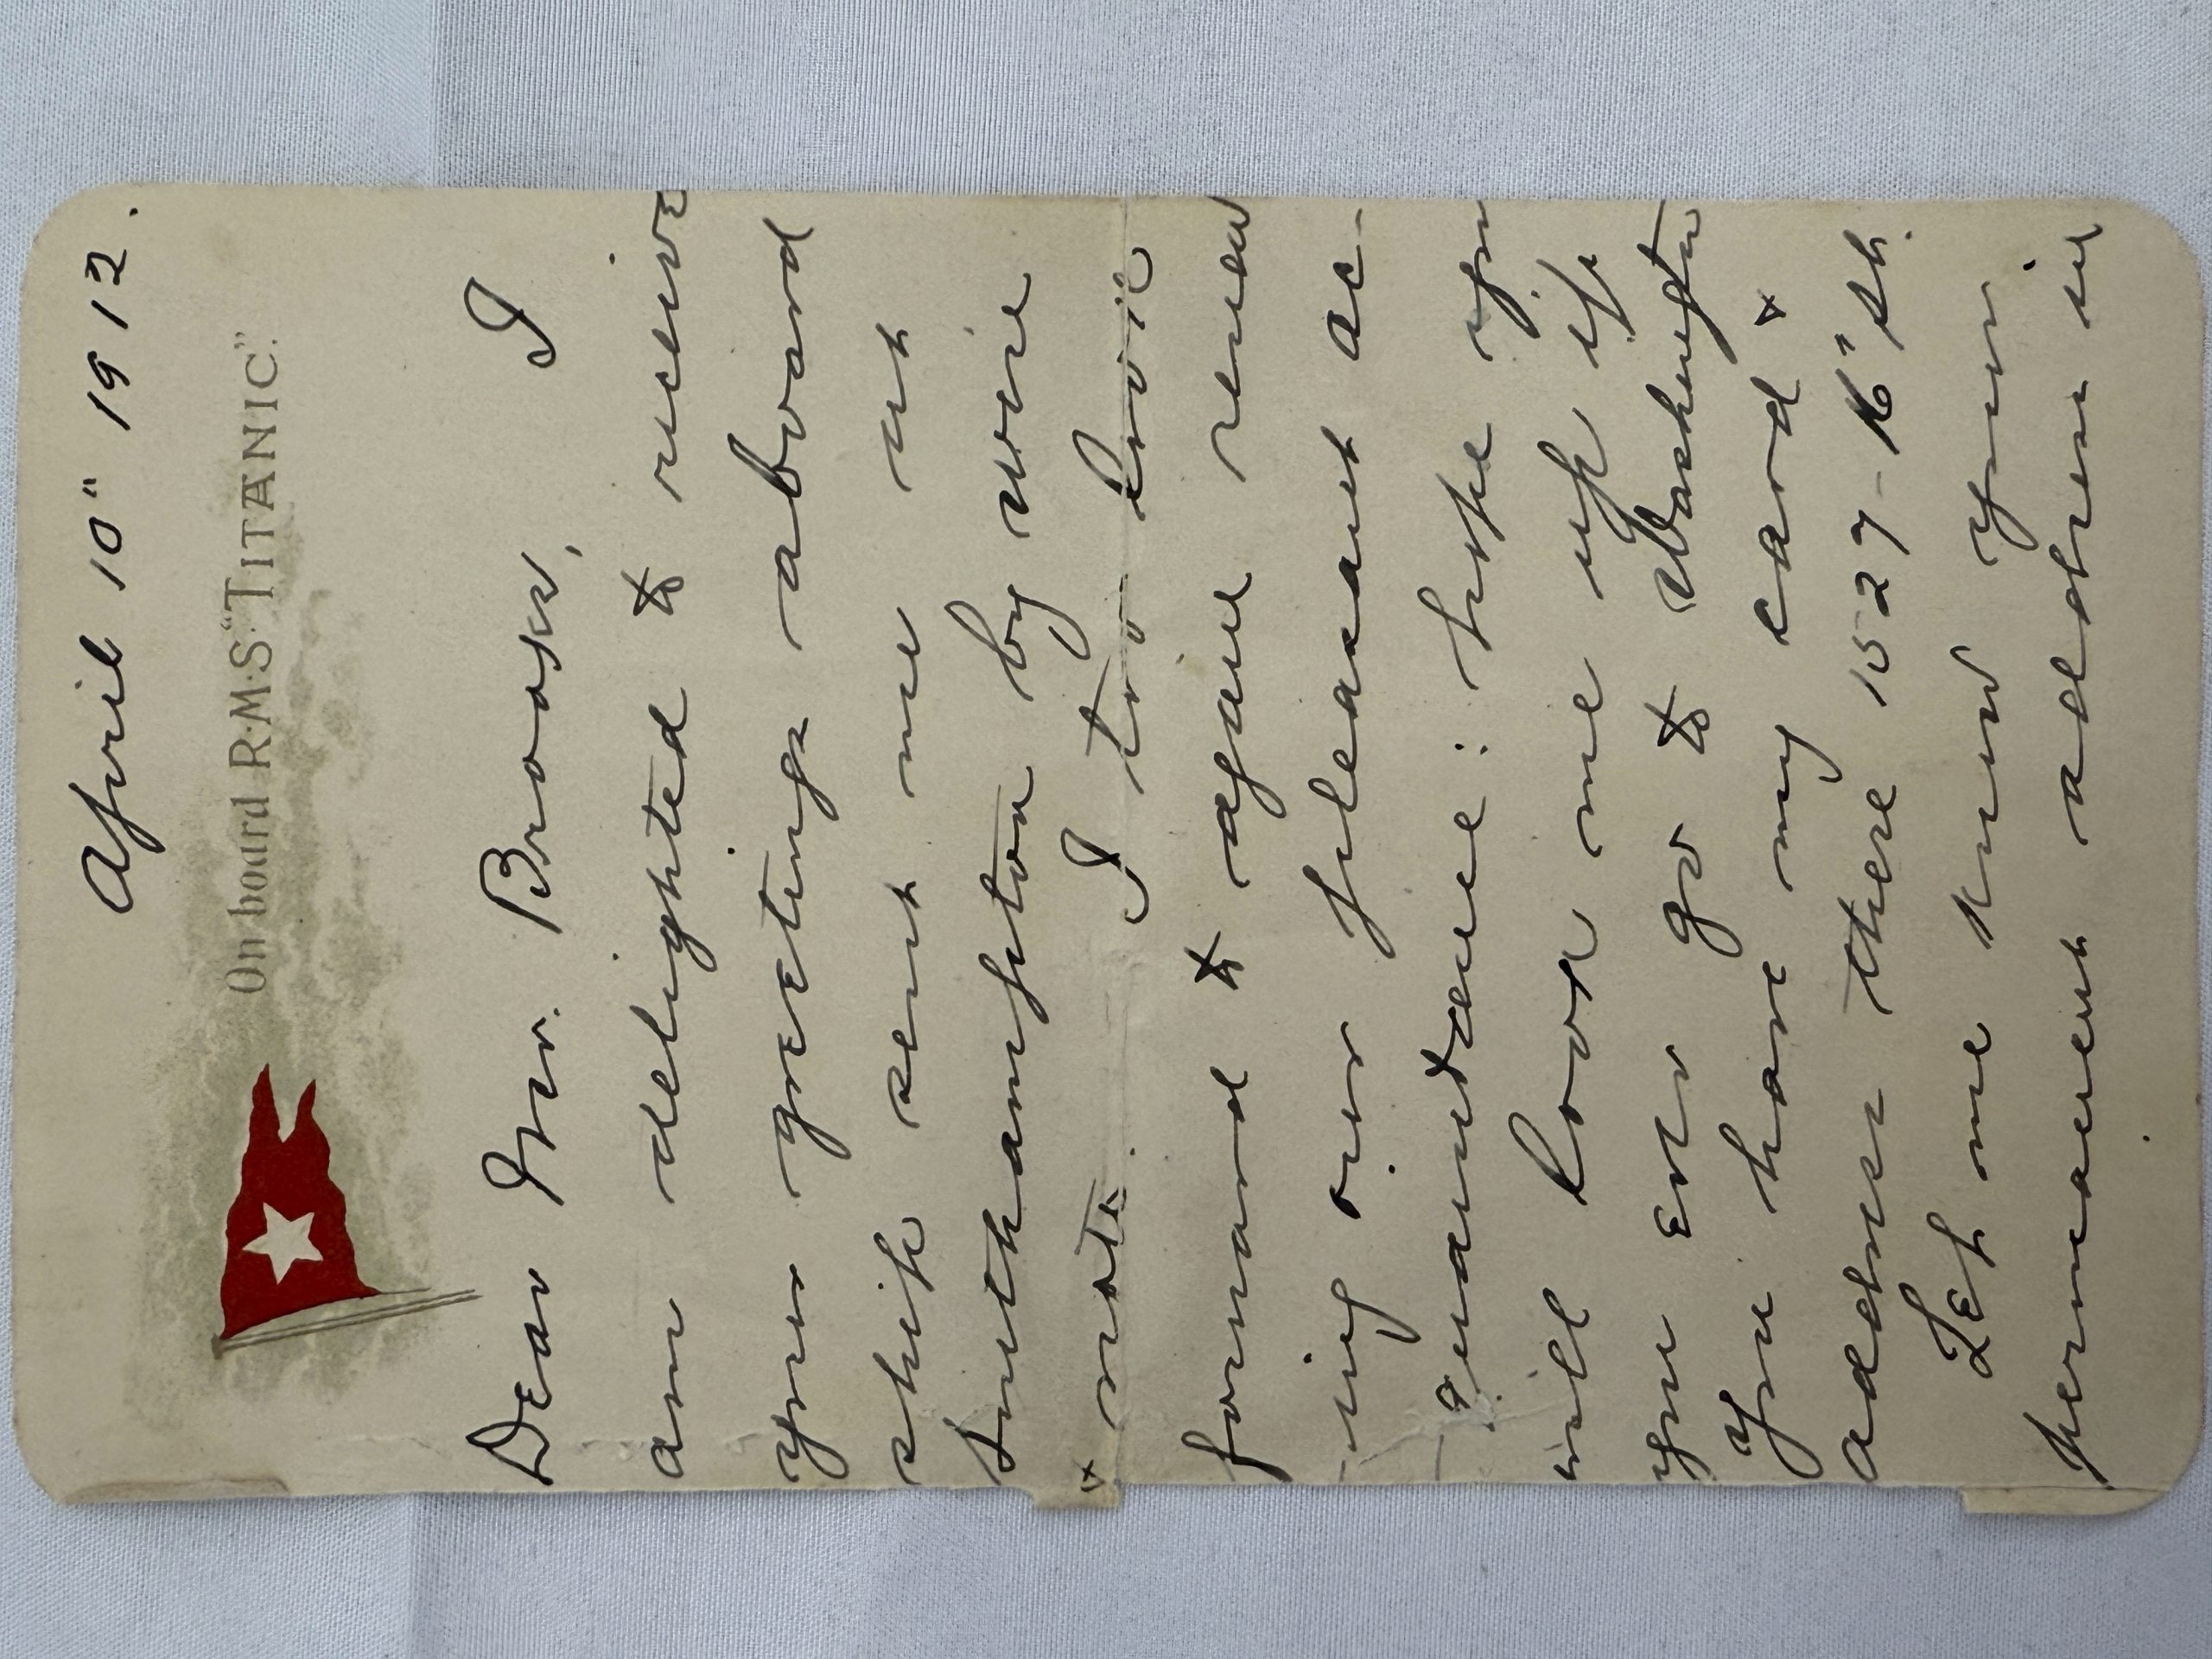 April 10" 1912.
On board R·M·S·"TITANIC."
Dear Mr. Brooks, I
am delighted to receive
your greetings aboard
ship sent me at
Southampton by wire
& note. I too look
forward to again renew
-ing our pleasant ac-
quaintance: hope you
will look me up if
you ever go to Washington
You have my card &
address there 1527-16" St.
Let me know your
permanent address in